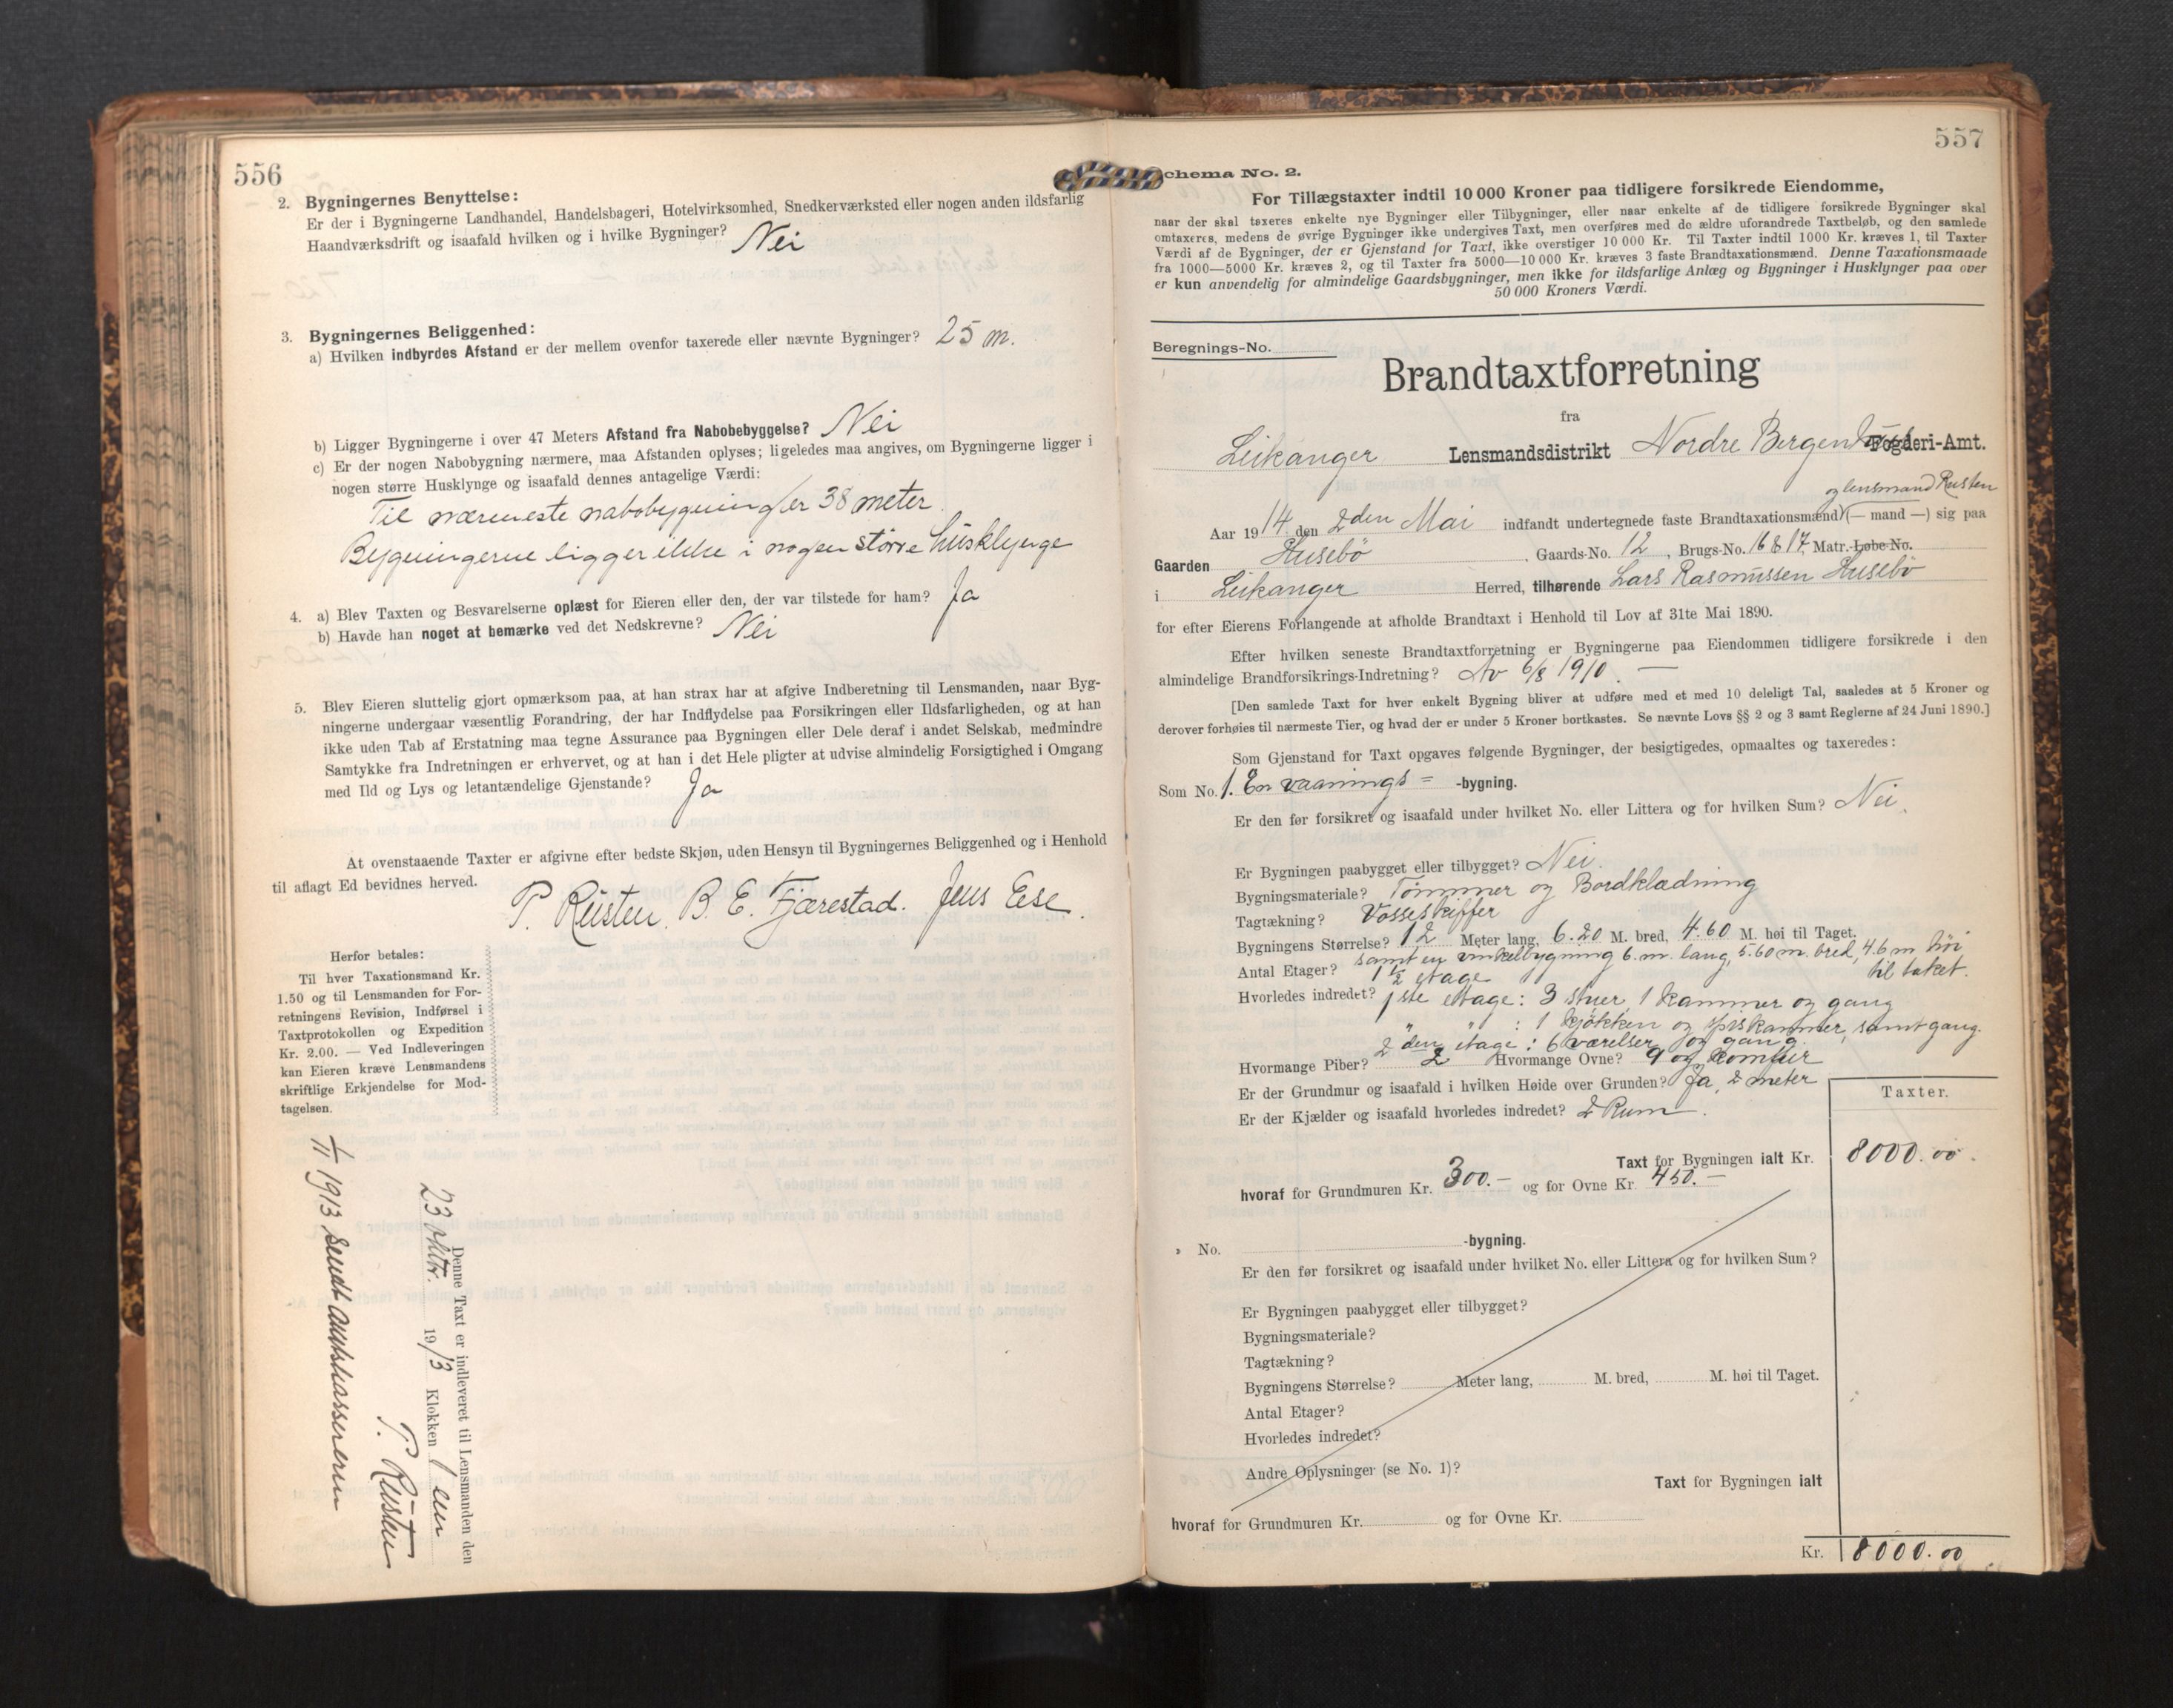 556
2. Bygningernes Benyttelse:
Er der i Bygningerne Landhandel, Handelsbageri, Hotelvirksomhed, Snedkerværksted eller nogen anden ildsfarlig
Haandværksdrift og isaafald hvilken og i hvilke Bygninger? Nei
3. Bygningernes Beliggenhed:
a) Hvilken indbyrdes Afstand er der mellem ovenfor taxerede eller nævnte Bygninger? 25 m.
b) Ligger Bygningerne i over 47 Meters Afstand fra Nabobebyggelse? Nei
c) Er der nogen Nabobygning nærmere, maa Afstanden oplyses; ligeledes maa angives, om Bygningerne ligger i
nogen større Husklynge og isaafald dennes antagelige Værdi:
Til nærmeste nabobygning er 38 meter.
Bygningerne ligger ikke i nogen større husklynge
4. a) Blev Taxten og Besvarelserne oplæst for Eieren eller den, der var tilstede for ham? Ja
b) Havde han noget at bemærke ved det Nedskrevne? Nei
5. Blev Eieren sluttelig gjort opmærksom paa, at han strax har at afgive Indberetning til Lensmanden, naar Byg-
ningerne undergaar væsentlig Forandring, der har Indflydelse paa Forsikringen eller Ildsfarligheden, og at han
ikke uden Tab af Erstatning maa tegne Assurance paa Bygningen eller Dele deraf i andet Selskab, medmindre
Samtykke fra Indretningen er erhvervet, og at han i det Hele pligter at udvise almindelig Forsigtighed i Omgang
med Ild og Lys og letantændelige Gjenstande? Ja
At ovenstaaende Taxter er afgivne efter bedste Skjøn, uden Hensyn til Bygningernes Beliggenhed og i Henhold
til aflagt Ed bevidnes herved.
P. Rusten. B. E. Fjærestad. Jens Eese.
Herfor betales:
Til hver Taxationsmand Kr.
1.50 og til Lensmanden for For-
retningens Revision, Indførsel i
Taxtprotokollen og Expedition
Kr. 2.00. — Ved Indleveringen
kan Eieren kræve Lensmandens
skriftlige Erkjendelse for Mod-
tagelsen.
Denne Taxt er indleveret til Lensmanden den
23 oktbr. 1913 Klokken 1 em
P. Rusten
1/11 1913 sendt amtskassereren
557
chema No. 2.
For Tillægstaxter indtil 10 000 Kroner paa tidligere forsikrede Eiendomme,
naar der skal taxeres enkelte nye Bygninger eller Tilbygninger, eller naar enkelte af de tidligere forsikrede Bygninger skal
omtaxeres, medens de øvrige Bygninger ikke undergives Taxt, men overføres med de ældre uforandrede Taxtbeløb, og den samlede
Værdi af de Bygninger, der er Gjenstand for Taxt, ikke overstiger 10 000 Kr. Til Taxter indtil 1000 Kr. kræves 1, til Taxter
fra 1000—5000 Kr. kræves 2, og til Taxter fra 5000—10 000 Kr. kræves 3 faste Brandtaxationsmænd. Denne Taxationsmaade
er kun anvendelig for almindelige Gaardsbygninger, men ikke for ildsfarlige Anlæg og Bygninger i Husklynger paa over
50 000 Kroners Værdi.
Beregnings-No.
Brandtaxtforretning
fra
Leikanger Lensmandsdistrikt Nordre Bergenhus Fogderi-Amt.
og lensmand Rusten
Aar 1914 den 2den Mai indfandt undertegnede faste Brandtaxationsmænd (— mand —) sig paa
Gaarden Husebö, Gaards-No. 12, Brugs-No. 16 & 17, Matr.-Løbe-No.
i Leikanger Herred, tilhørende Lars Rasmussen Husebö
for efter Eierens Forlangende at afholde Brandtaxt i Henhold til Lov af 31te Mai 1890.
Efter hvilken seneste Brandtaxtforretning er Bygningerne paa Eiendommen tidligere forsikrede i den
almindelige Brandforsikrings-Indretning? Av 6/8 1910. —
[Den samlede Taxt for hver enkelt Bygning bliver at udføre med et med 10 deleligt Tal, saaledes at 5 Kroner og
derover forhøies til nærmeste Tier, og hvad der er under 5 Kroner bortkastes. Se nævnte Lovs §§ 2 og 3 samt Reglerne af 24 Juni 1890.]
Som Gjenstand for Taxt opgaves følgende Bygninger, der besigtigedes, opmaaltes og taxeredes:
Som No. 1. En vaanings= -bygning.
Er den før forsikret og isaafald under hvilket No. eller Littera og for hvilken Sum? Nei.
Er Bygningen paabygget eller tilbygget? Nei.
Bygningsmateriale? Tømmer og Bordklædning
Tagtækning? Vosseskiffer
Bygningens Størrelse? 12 Meter lang, 6.20 M. bred, 4.60 M. høi til Taget.
samt en vinkelbygning 6.m. lang, 5.60 m. bred, 4.6 m høi
til taket.
Antal Etager? 1 1/2 etage
Hvorledes indredet? 1ste etage: 3 stuer 1 kammer og gang
" " : 1 kjøkken og spiskammer, samt gang.
2den etage: 6 værelser og gang.
Hvormange Piber? 2 Hvormange Ovne? 9 og komfur
Er der Grundmur og isaafald i hvilken Høide over Grunden? Ja, 2 meter
Er der Kjælder og isaafald hvorledes indredet? 2 Rum.
Taxter.
Taxt for Bygningen ialt Kr. 8000.00.
hvoraf for Grundmuren Kr. 300.— og for Ovne Kr. 450.—
» No. -bygning.
Er den før forsikret og isaafald under hvilket No. eller Littera og for hvilken Sum?
Er Bygningen paabygget eller tilbygget?
Bygningsmateriale?
Tagtækning?
Bygningens Størrelse? Meter lang, M. bred, M. høi til Taget.
Antal Etager?
Hvorledes indredet?
Andre Oplysninger (se No. 1)?
Taxt for Bygningen ialt
hvoraf for Grundmuren Kr. og for Ovne Kr.
Kr. 8000.00